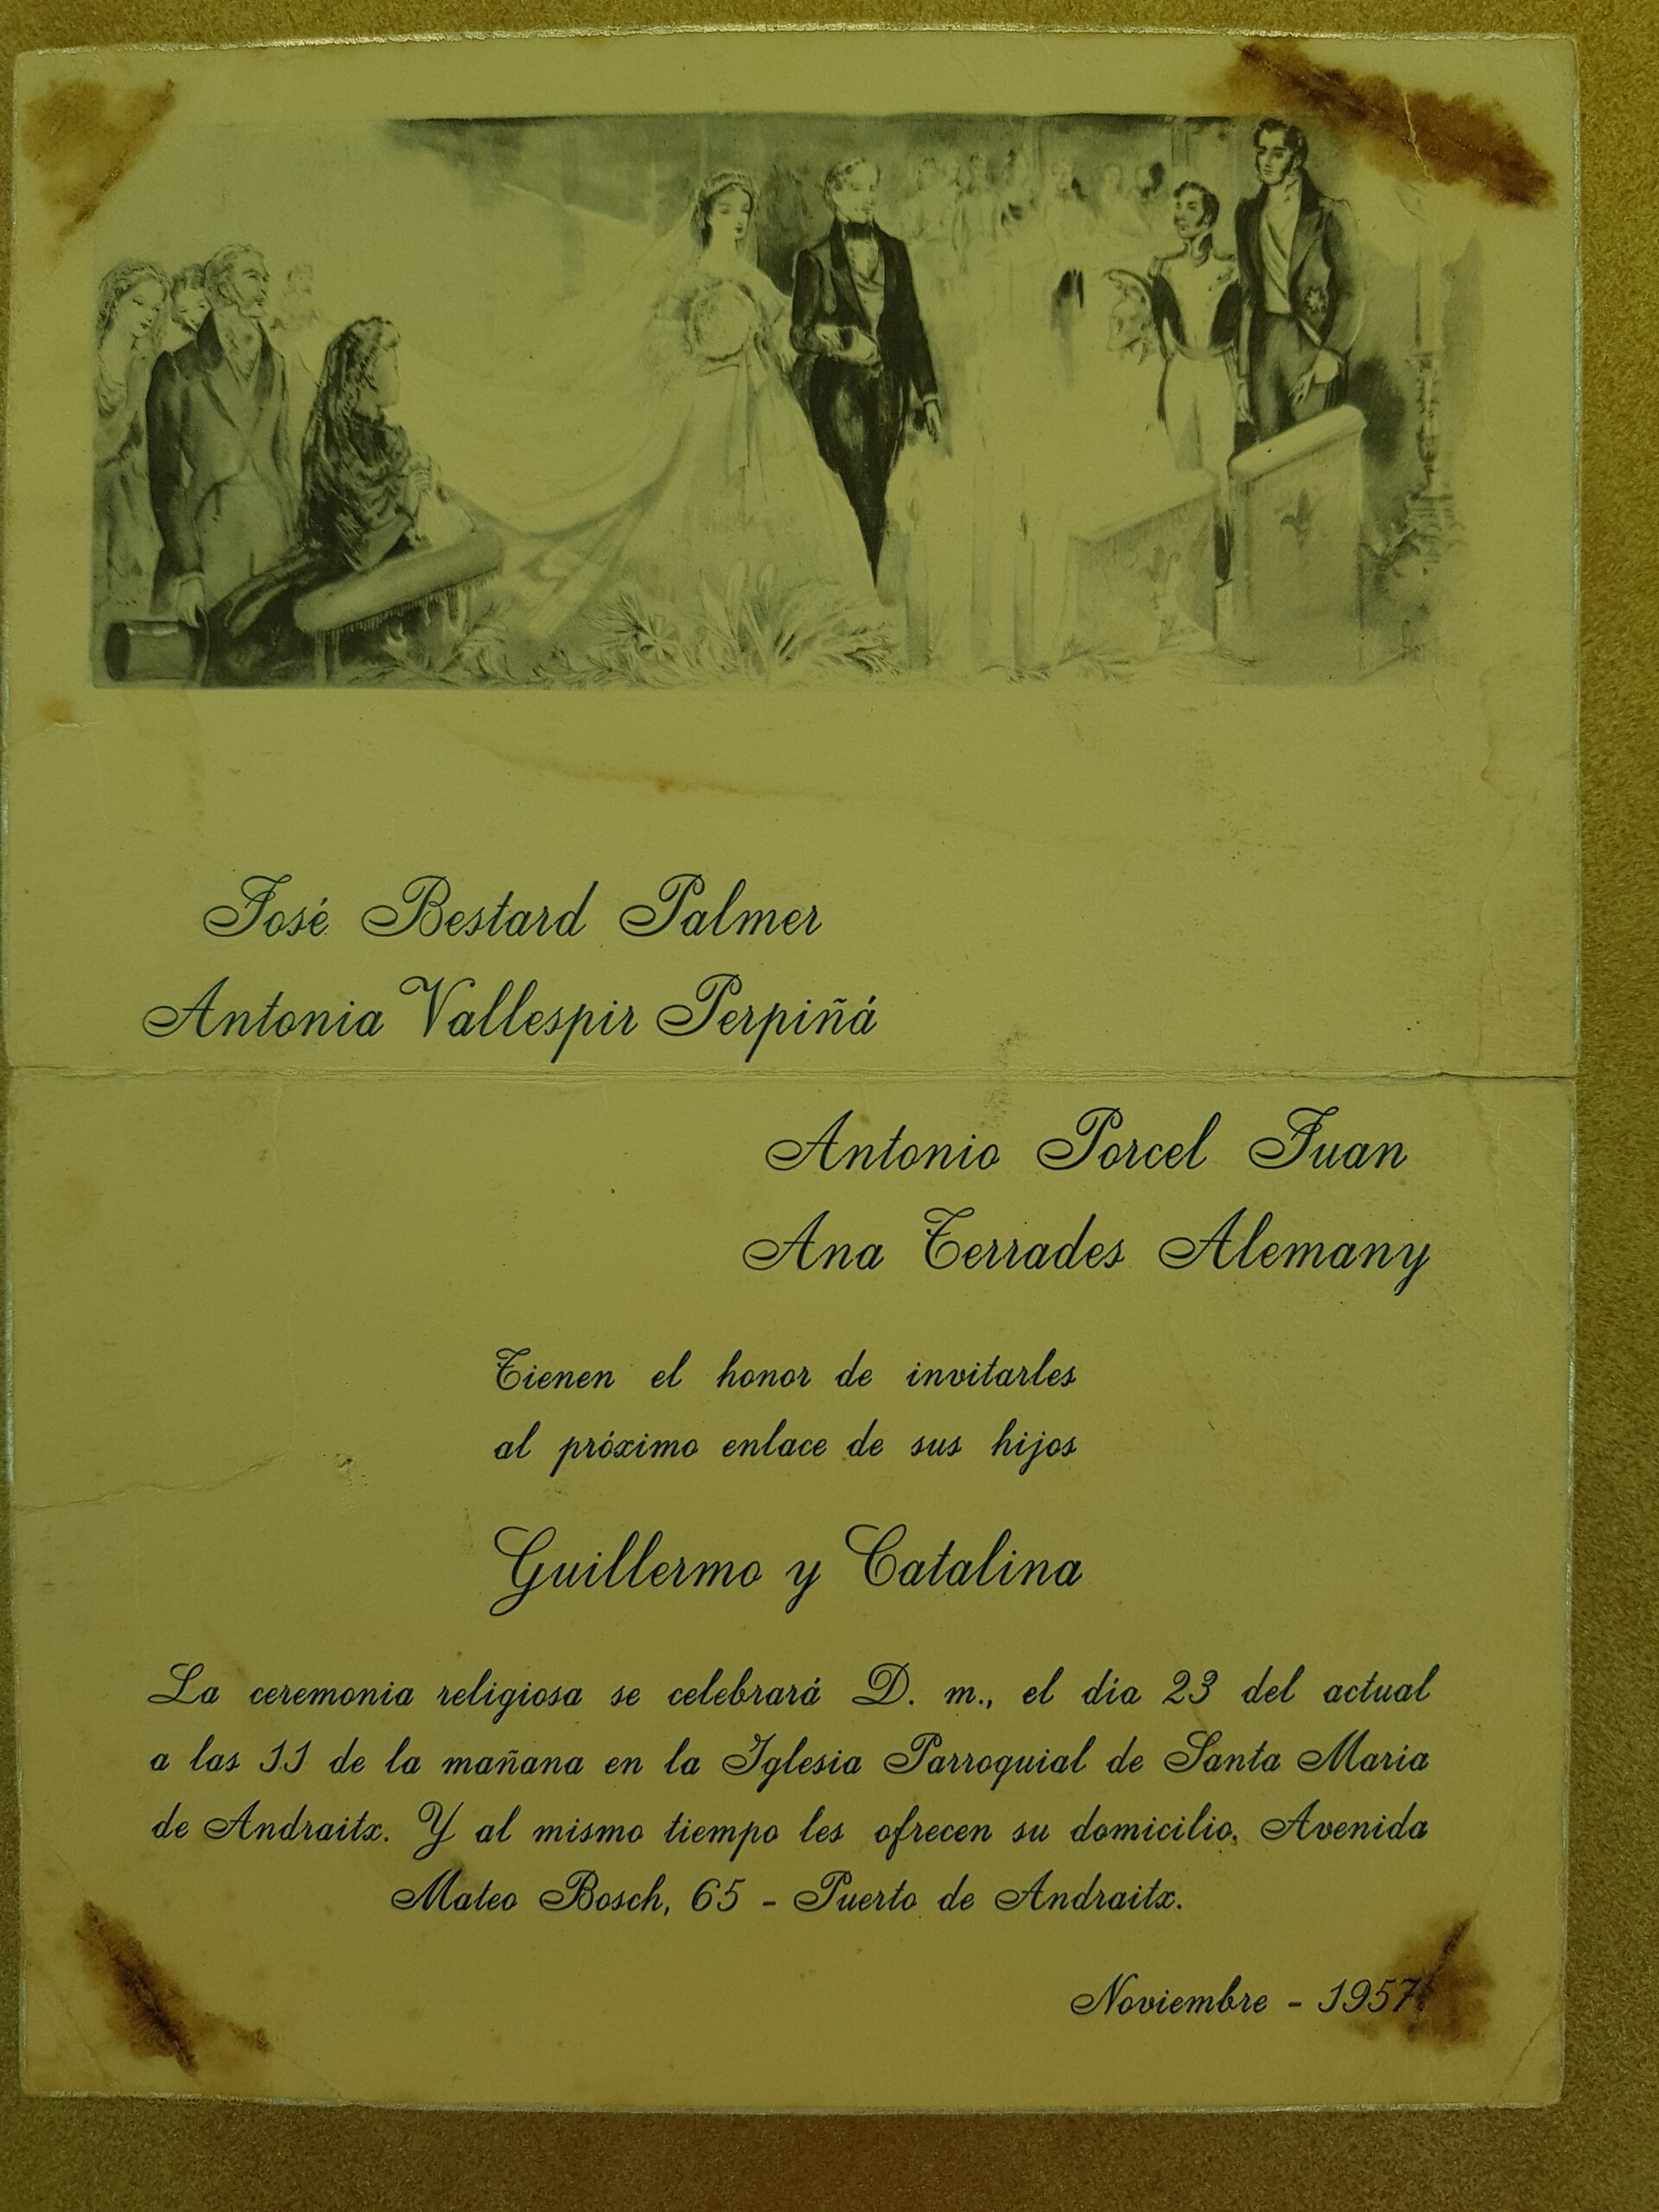 José Bestard Palmer
Antonia Vallespir Perpiñá
Antonio Porcel Juan
Ana Terrades Alemany
Tienen el honor de invitarles
al próximo enlace de sus hijos
Guillermo y Catalina
La ceremonia religiosa se celebrará D. m., el día 23 del actual
a las 11 de la mañana en la Iglesia Parroquial de Santa María
de Andraitx. Y al mismo tiempo les ofrecen su domicilio, Avenida
Mateo Bosch, 65 - Puerto de Andraitx.
Noviembre - 1957